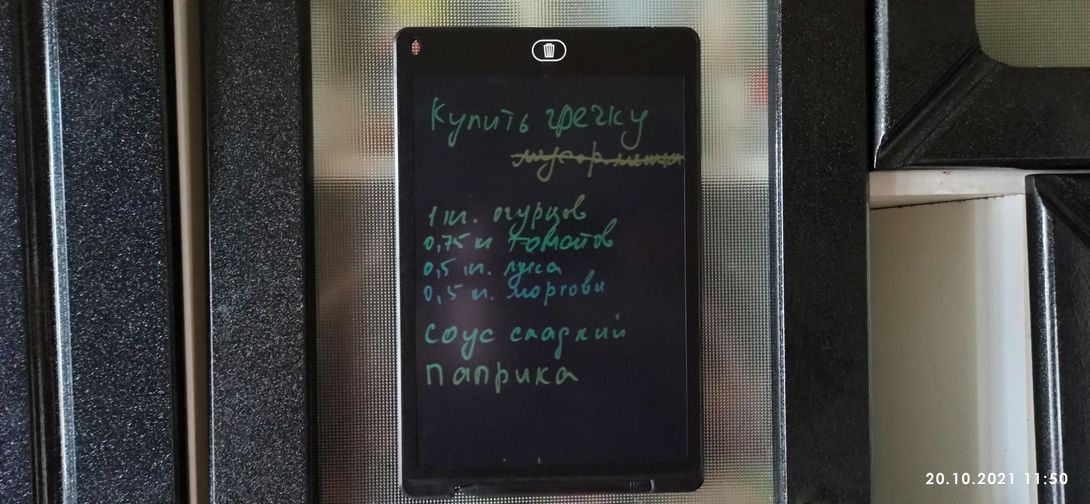 Купить гречку
мусор. мешки
1 кг. огурцов
0,75 кг томатов
0,5 кг. лука
0,5 кг. моркови
соус сладкий
паприка
20.10.2021 11:50